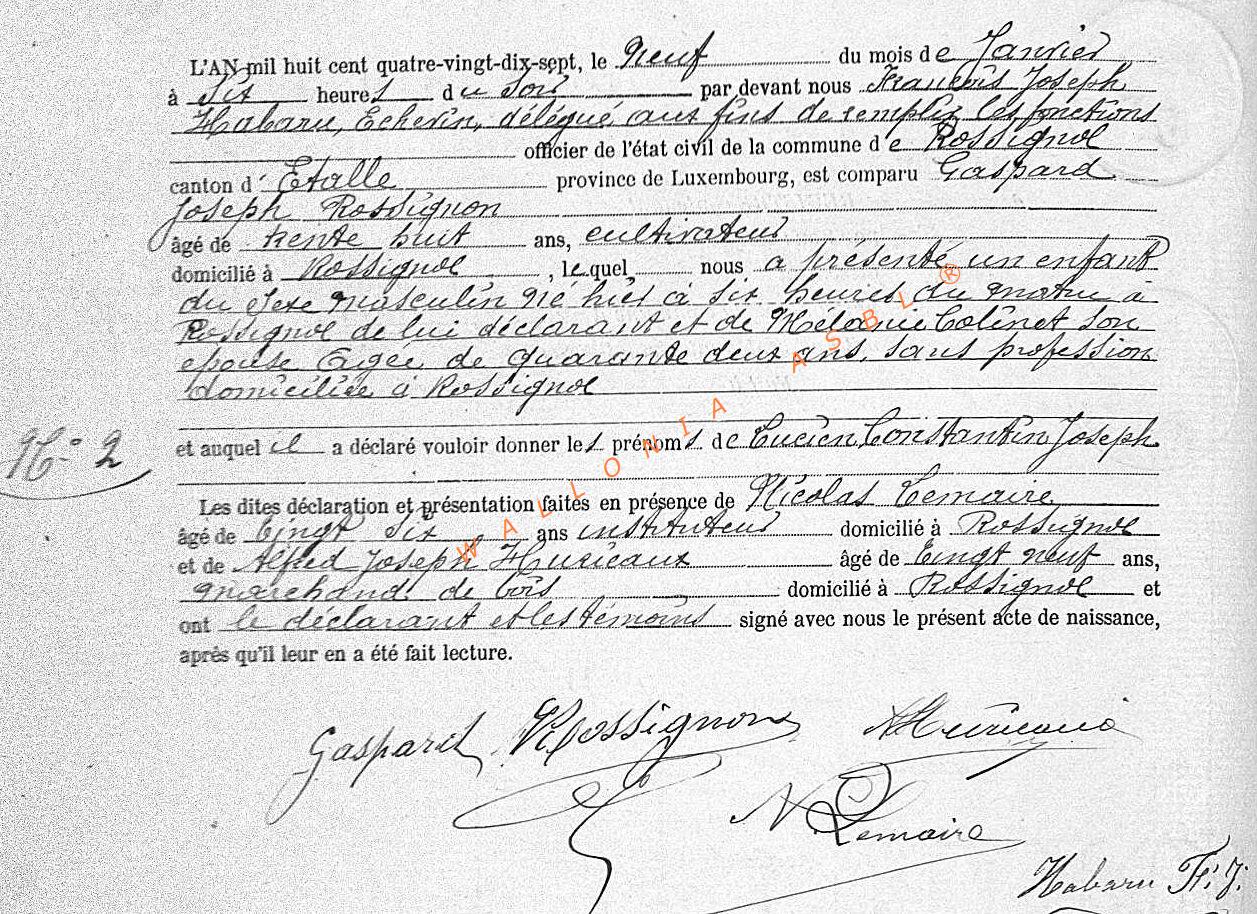 L'AN mil huit cent quatre-vingt-dix-sept, le Neuf du mois de Janvier
à Six heures du Soir par devant nous François Joseph
Habaru, Echevin, délégué aux fins de remplir les fonctions
officier de l'état civil de la commune de Rossignol
canton d' Etalle province de Luxembourg, est comparu Gaspard
Joseph Rossignon
âgé de trente huit ans, cultivateur
domicilié à Rossignol, lequel nous a présenté un enfant
du sexe masculin né hier à six heures du matin à
Rossignol de lui déclarant et de Mélanie Colinet son
epouse Agée de quarante deux ans, sans profession
domiciliée à Rossignol
N° 2
et auquel il a déclaré vouloir donner les prénoms de Lucien Constantin Joseph
Les dites déclaration et présentation faites en présence de Nicolas Lemaire
âgé de Vingt Six ans instituteur domicilié à Rossignol
et de Alfred Joseph Huriaux âgé de Vingt neuf ans,
marchand de bois domicilié à Rossignol et
ont le déclarant et les témoins signé avec nous le présent acte de naissance,
après qu'il leur en a été fait lecture.
Gaspard Rossignon
N Lemaire
Habaru F. J.
WALLONIA ASBL ®